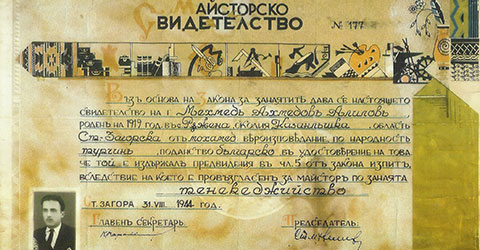 МАЙСТОРСКО
ВИДЕТЕЛСТВО
№ 177
ВЪЗЪ ОСНОВА НА ЗАКОНА ЗА ЗАНАЯТИТѢ ДАВА СЕ НАСТОЯЩЕТО
СВИДЕТЕЛСТВО НА Г. Мехмедъ Ахмедовъ Алиповъ
РОДЕНЪ НА 1919 ГОД. ВЪ ОКОЛИЯ Казанлъшка, ОБЛАСТЬ
Ст.-Загорска ОТЪ мохамед. ВѢРОИЗПОВѢДАНИЕ, ПО НАРОДНОСТЬ
турчинъ, ПОДАНСТВО българско, ВЪ УДОСТОВѢРЕНИЕ НА ТОВА,
ЧЕ ТОЙ Е ИЗДЪРЖАЛЪ ПРЕДВИДЕНИЯ ВЪ ЧЛ. 5 ОТЪ ЗАКОНА ИЗПИТЪ,
ВСЛЕДСТВИЕ НА КОЕТО Е ПРОВЪЗГЛАСЕНЪ ЗА МАЙСТОРЪ ПО ЗАНАЯТА
тенекеджийство
СТ. ЗАГОРА 31.VIII. 1944 ГОД.
ГЛАВЕНЪ СЕКРЕТАРЬ:
ПРЕДСЕДАТЕЛЬ: